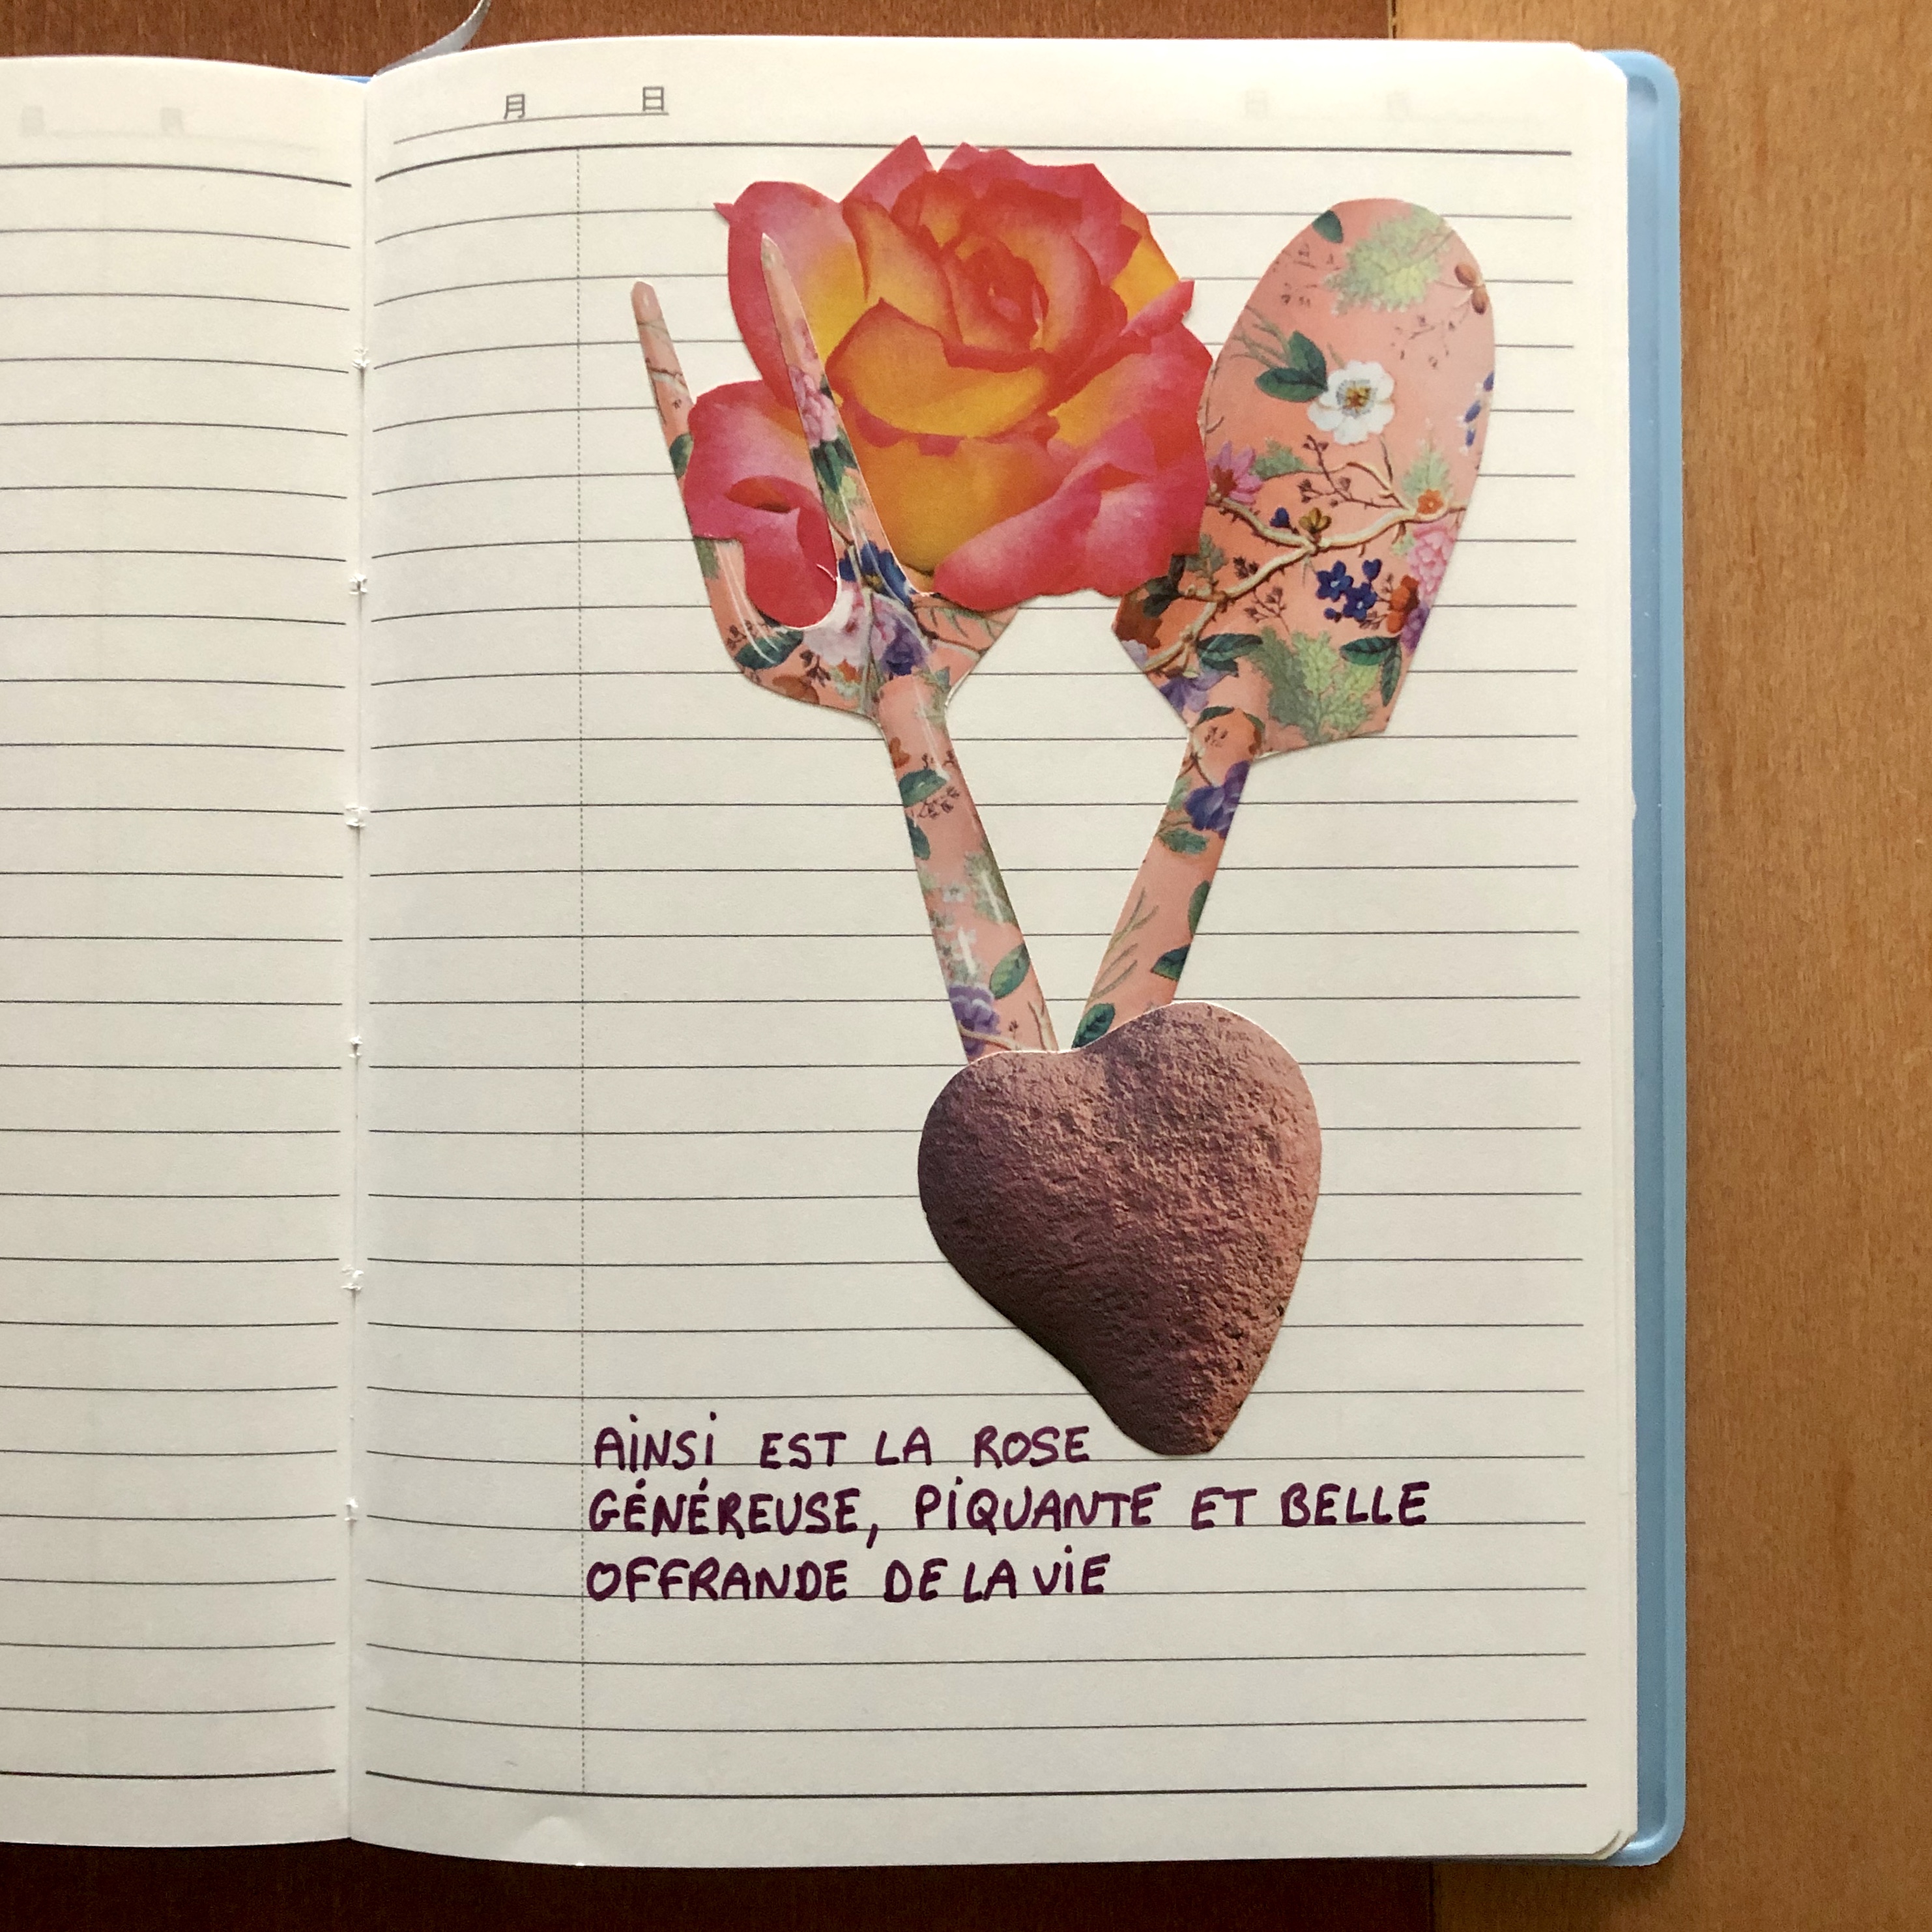 月 日
AINSI EST LA ROSE
GÉNÉREUSE, PIQUANTE ET BELLE
OFFRANDE DE LA VIE